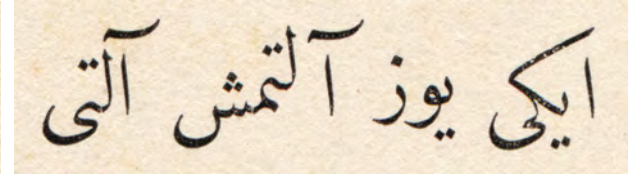 ایكی یوز آلتمش آلتی